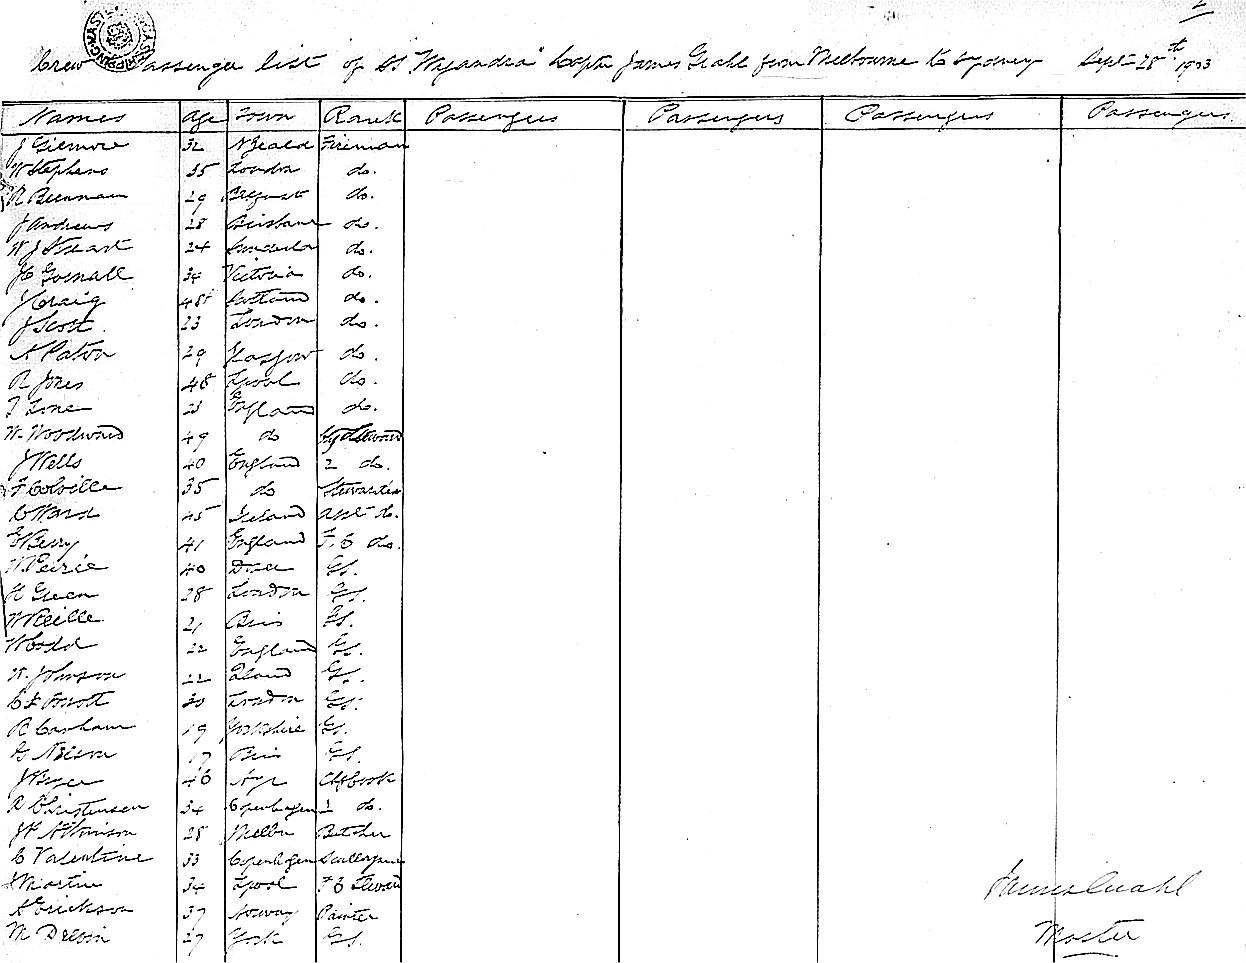 2
Crew & Passenger list of SS "Wyandra" Captn James from Melbourne to Sydney Sept 28th 1903
Names Age Town Rank Passengers Passengers Passengers Passengers
J Gilmore 32 N Zeald Fireman
W Stephens 35 London do.
R Brennan 29 Belfast do.
J Andrews 28 Brisbane do.
W J Stuart 24 do.
Gosnall 34 Victoria do.
J Craig 48 Scotland do.
J Scott 23 London do.
A Paton 29 Glasgow do.
R Jones 48 Lpool do.
T Lone England do.
W. Woodward 49 do
J Wells 40 England 2 do.
F Colville 35 do Stewardess
C Ward 45 Ireland asst do.
E Berry 41 England F. C do.
W. Peirie 40 GS.
H Green 28 London GS.
W 21 Bris GS.
W Codd 22 England GS.
W. Johnson 22 GS.
30 London GS.
R 19 Yorkshire GS.
G Nelson 17 Bris GS.
J 46 Ayr Chf Cook
R Christensen 34 Copenhagen 2 do.
J H Atkinson 28 Melbn Butcher
C Valentine 33 Copenhagen
J Martin 34 Lpool F C Steward
A Erickson 37 Norway Painter
M 27 York GS.
James
Master